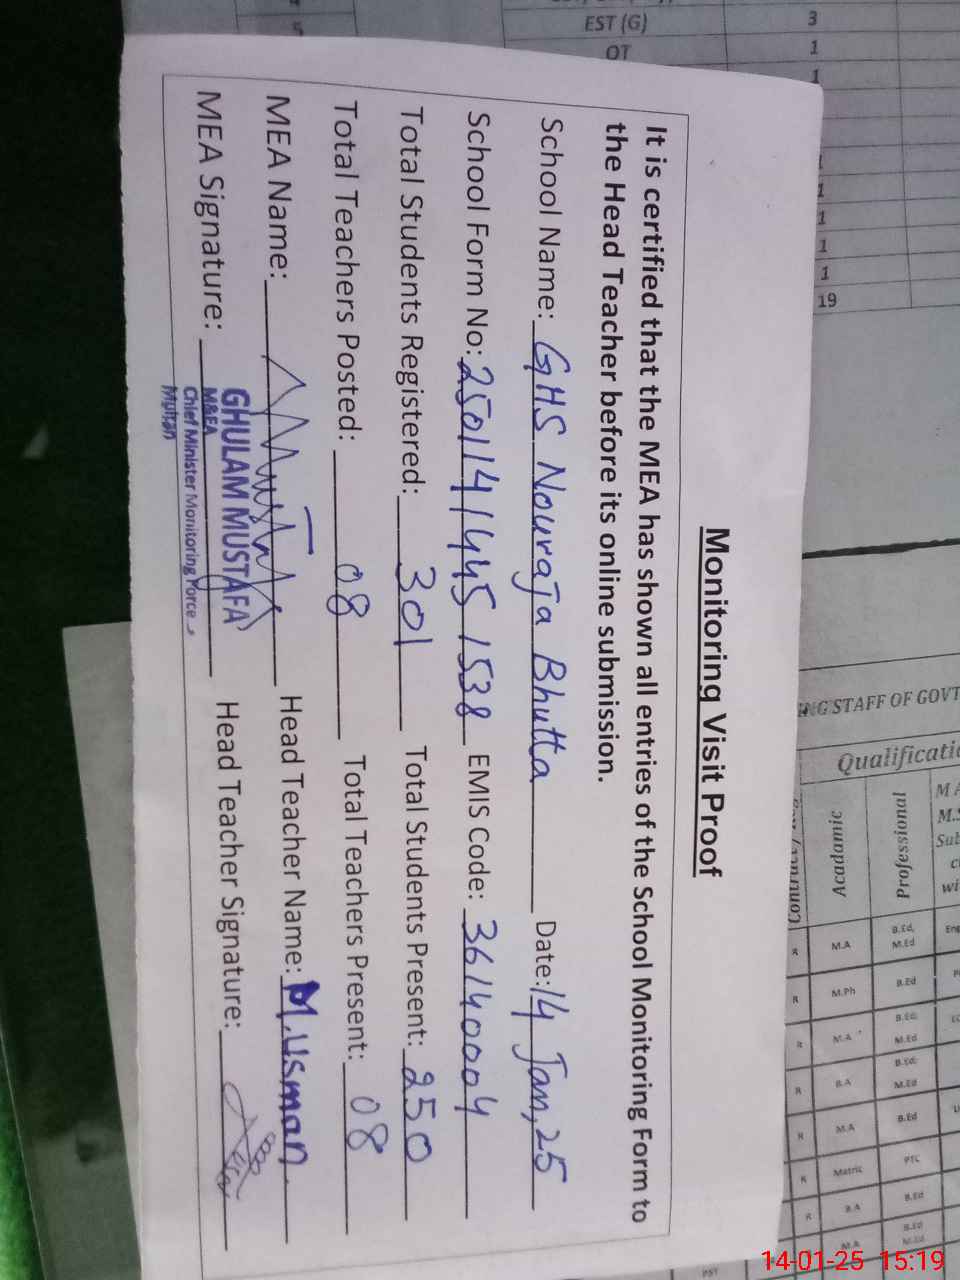 Monitoring Visit Proof
It is certified that the MEA has shown all entries of the School Monitoring Form to
the Head Teacher before its online submission.
School Name: GHS Nouraja Bhutta Date: 14 Jan, 25
School Form No: 25011414451538 EMIS Code: 36140004
Total Students Registered: 301 Total Students Present: 250
Total Teachers Posted: 08 Total Teachers Present: 08
MEA Name: Head Teacher Name: M. Usman
MEA Signature: Head Teacher Signature:
GHULAM MUSTAFA
M&EA
Chief Minister Monitoring Force
Multan
EST (G) 3
OT 1
1
1
1
1
1
1
19
NG STAFF OF GOVT
Qualificatio
Acadamic
Professional
R M.A B.Ed, M.Ed
R M.Ph B.Ed
R M.A B.Ed, M.Ed
R B.A B.Ed, M.Ed
R M.A B.Ed
R Matric PTC
R B.A B.Ed
M.A B.Ed M.Ed
PST
14-01-25 15:19